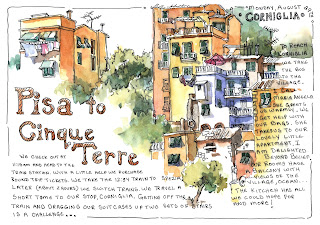 Pisa to
Cinque
Terre
WE CHECK OUT AT
VIVIANI AND HEAD TO THE
TRAIN STATION. WITH A LITTLE HELP WE PURCHASE
ROUND TRIP TICKETS. WE TAKE THE 12:34 TRAIN TO SPEZIA
LATER (ABOUT 2 HOURS) WE SWITCH TRAINS. WE TRAVEL A
SHORT TIME TO OUR STOP, CORNIGLIA. GETTING OFF THE
TRAIN AND DRAGGING OUR SUITCASES UP TWO SETS OF STAIRS
IS A CHALLENGE...
MONDAY, AUGUST
CORNIGLIA
TO REACH
CORNIGLIA
WE TAKE
THE BUS
TO THE
VILLAGE.
I CALL
MARIA ANGELA
SHE GREETS
US WARMLY, WE
GET HELP WITH
THE BAGS. SHE
TAKES US TO OUR
LOVELY LITTLE
APARTMENT. I
AM DELIGHTED
BEYOND BELIEF.
OUR ROOMS HAVE
A BALCONY WITH
VIEWS OF THE
VILLAGE, OCEAN.
THE KITCHEN HAS ALL
WE COULD HOPE FOR
AND MORE!